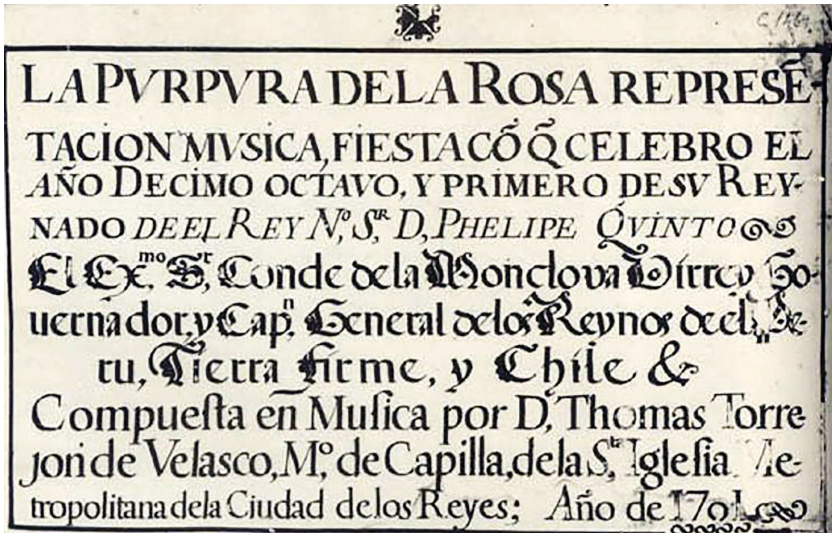 LA PVRPVRA DE LA ROSA REPRESẼ-
TACION MVSICA, FIESTA CÕ Q̃ CELEBRO EL
AÑO DECIMO OCTAVO, Y PRIMERO DE SV REY-
NADO DE EL REY N.º S.ᴿ D, PHELIPE QVINTO
El Ex.ᵐᵒ S.ʳ, Conde de la Monclova Virrey Go-
uernador, y Cap.ⁿ General de los Reynos de el Pe-
ru, Tierra firme, y Chile &
Compueſta en Muſica por D, Thomas Torre-
jon de Velasco, M.º de Capilla, de la S.ᵗᵃ Igleſia Me-
tropolitana de la Ciudad de los Reyes; Año de 1701